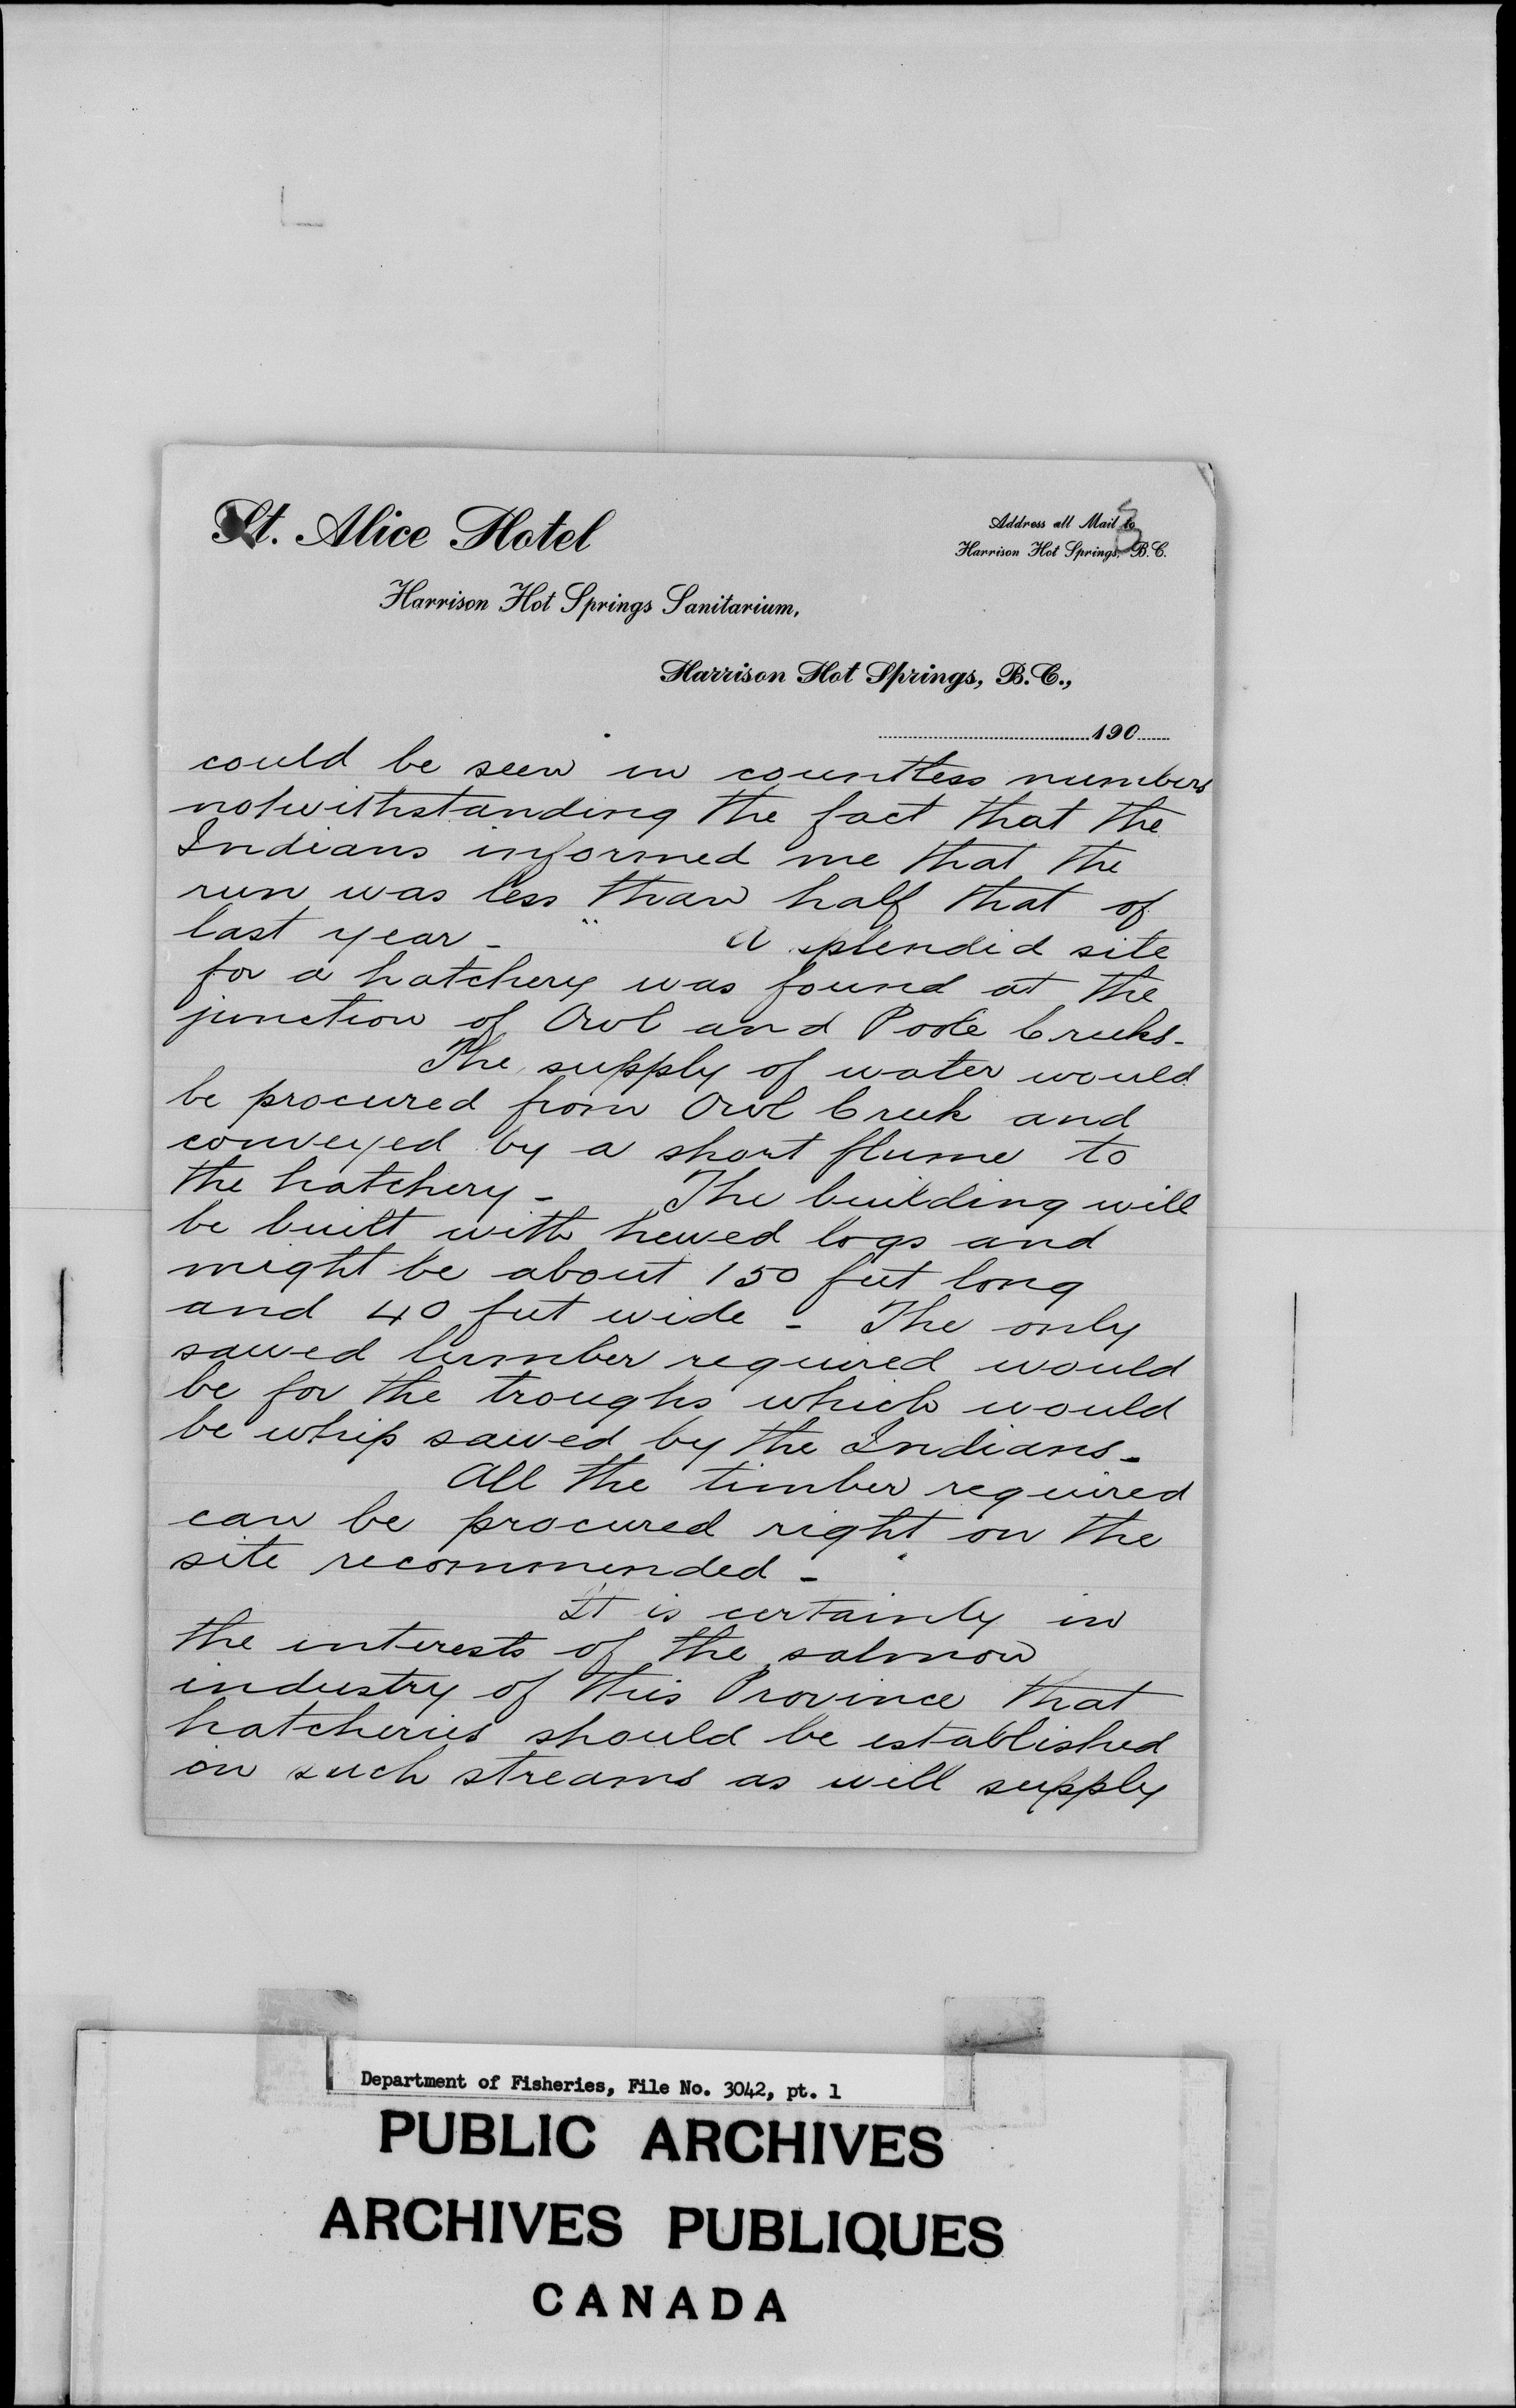 St. Alice Hotel
Address all Mail to
Harrison Hot Springs, B.C.
3
Harrison Hot Springs Sanitarium,
Harrison Hot Springs, B.C.,
190
could be seen in countless numbers
notwithstanding the fact that the
Indians informed me that the
run was less than half that of
last year - A splendid site
for a hatchery was found at the
junction of Owl and Poole Creeks -
The supply of water would
be procured from Owl Creek and
conveyed by a short flume to
the hatchery - The building will
be built with hewed logs and
might be about 150 feet long
and 40 feet wide - The only
sawed lumber required would
be for the troughs which would
be whip sawed by the Indians -
All the timber required
can be procured right on the
site recommended -
It is certainly in
the interests of the salmon
industry of this Province that
hatcheries should be established
on such streams as will supply
Department of Fisheries, File No. 3042, pt. 1
PUBLIC ARCHIVES
ARCHIVES PUBLIQUES
CANADA